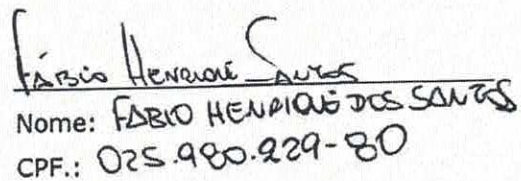 Fábio Henrique Santos
Nome: FABIO HENRIQUE DOS SANTOS
CPF.: 025.980.229-80